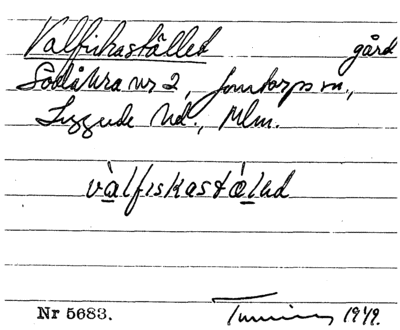 Valfiskastället gård
Södåkra nr 2, Jonstorps sn.,
Luggude hd., Mlm.
và̱lfiskastǽ̱lәd
Nr 5683. 1949.